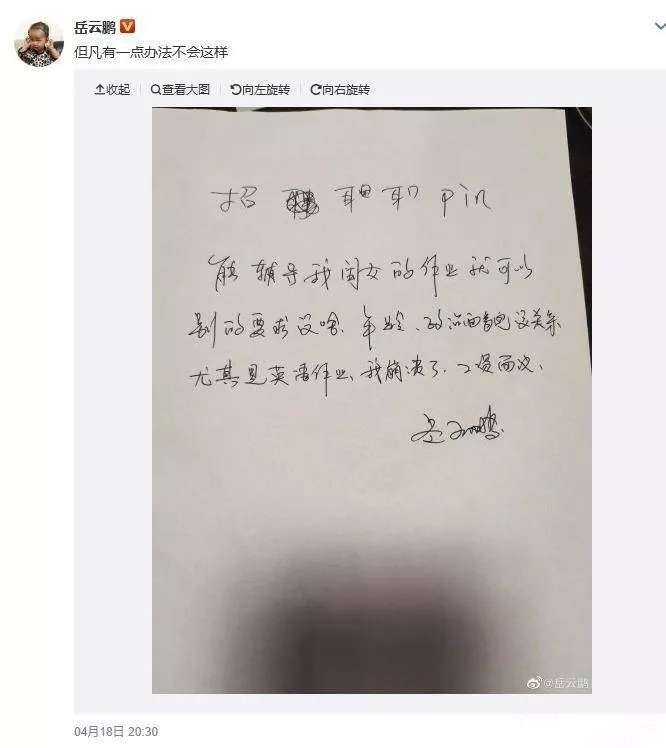 岳云鹏
但凡有一点办法不会这样
收起 查看大图 向左旋转 向右旋转
招 Pin
能辅导我闺女的作业就可以
别的要求没啥、年龄、政治面貌没关系
尤其是英语作业、我崩溃了.工资面议、
岳云鹏.
@岳云鹏
04月18日 20:30